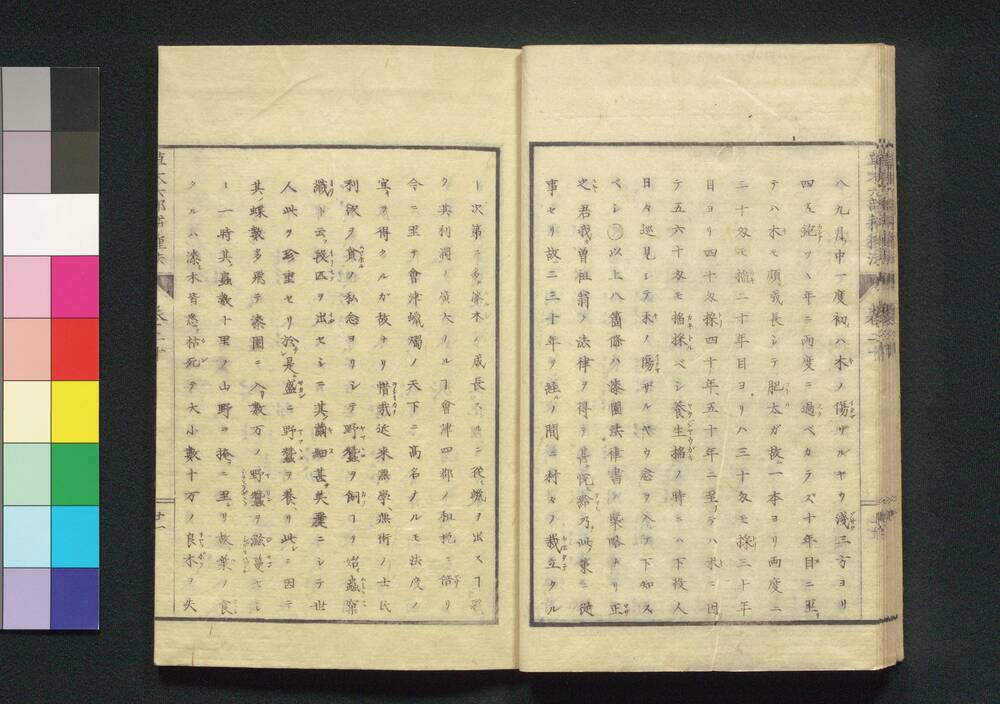 八九月ノ中一度初ハ木ノ傷ザルヤウ淺三方ヨリ
四五鉋ヅヽ年ニ兩度ニ過ベカラズ十年目ニ至
テハ木モ頗成長シテ肥太ガ故一本ヨリ兩度ニ
二十匁モ搔二十年目ヨリハ三十匁モ採三十年
目ヨリ四十匁採四十年五十年ニ至リテハ木ニ因
テ五六十匁モ搔採ベシ養生搔ノ時ニハ下役人
日々巡見シテ木ノ傷ザルヤウ念ヲ入下知ス
ベシ以上八箇條ハ漆園法律書ノ槩略ナリ正
之君我曾祖翁ノ法律ヲ得テ其悅給乃此業ニ從
事セリ故ニ二三十年ヲ經ノ間ニ村々ノ栽立タル
ト次第ニ多漆木ノ成長スルニ從蠟ヲ出スヿ
ク其利潤ノ廣大ナルヿ會津四郡ノ租稅ニ倍リ
今ニ至テ會津蠟燭ノ天下ニ高名ナルモ法度ノ
宜ヲ得タルガ故ナリ惜哉近來無學無術ノ士民
利欲ヲ貪ノ私念ヨリシテ野蠶ヲ飼フヿヲ始蟲
織ト云段匹ヲ出セシニ其繭細甚美麗ニシテ世
人此ヲ珍重セリ於是盛ニ野蠶ヲ養リ此ニ因テ
其蝶數多飛テ漆園ニ入數万ノ野蠶ヲ滋蔓セシ
一時其蟲數十里ノ山野ヲ掩ニ至リ故葉ノ食
タルハ漆木皆悉枯死テ大小數十万ノ良木ヲ失